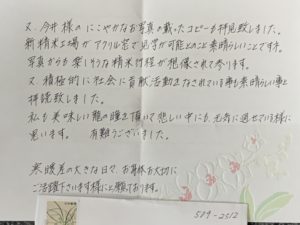 又、今井様のにこやかなお写真の載ったコピーも拝見致しました。
新精米工場がアクリル窓で見学が可能とのこと素晴らしいことですネ。
写真からも楽しそうな精米行程が想像されて参ります。
又、積極的に社会に貢献活動をなされている事も素晴らしい事と
拝読致しました。
私も美味しい龍の瞳を頂いて悲しい中にも元気に過せている様に
思います。 有難うございました。
寒暖差の大きな日々、お身体お大切に
ご活躍下さいます様にと願っております。
509-2512